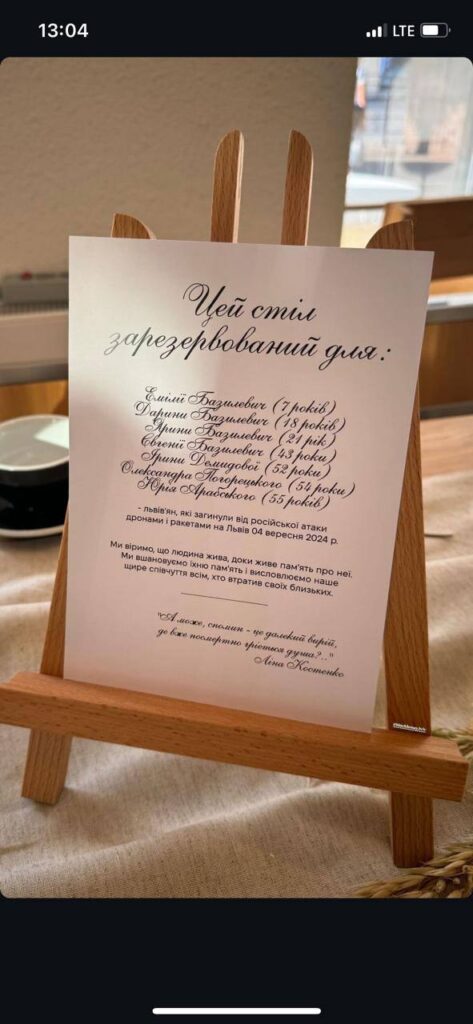 13:04
LTE
Цей стіл
зарезервований для:
Емілії Базилевич (7 років)
Дарини Базилевич (18 років)
Ярини Базилевич (21 рік)
Євгенії Базилевич (43 роки)
Ірини Демидової (52 роки)
Олександра Погорецького (54 роки)
Юрія Арабського (55 років)
- львів'ян, які загинули від російської атаки
дронами і ракетами на Львів 04 вересня 2024 р.
Ми віримо, що людина жива, доки живе пам'ять про неї.
Ми вшановуємо їхню пам'ять і висловлюємо наше
щире співчуття всім, хто втратив своїх близьких.
"А може, спомин - це далекий вирій,
де вже посмертно гріється душа?.."
Ліна Костенко